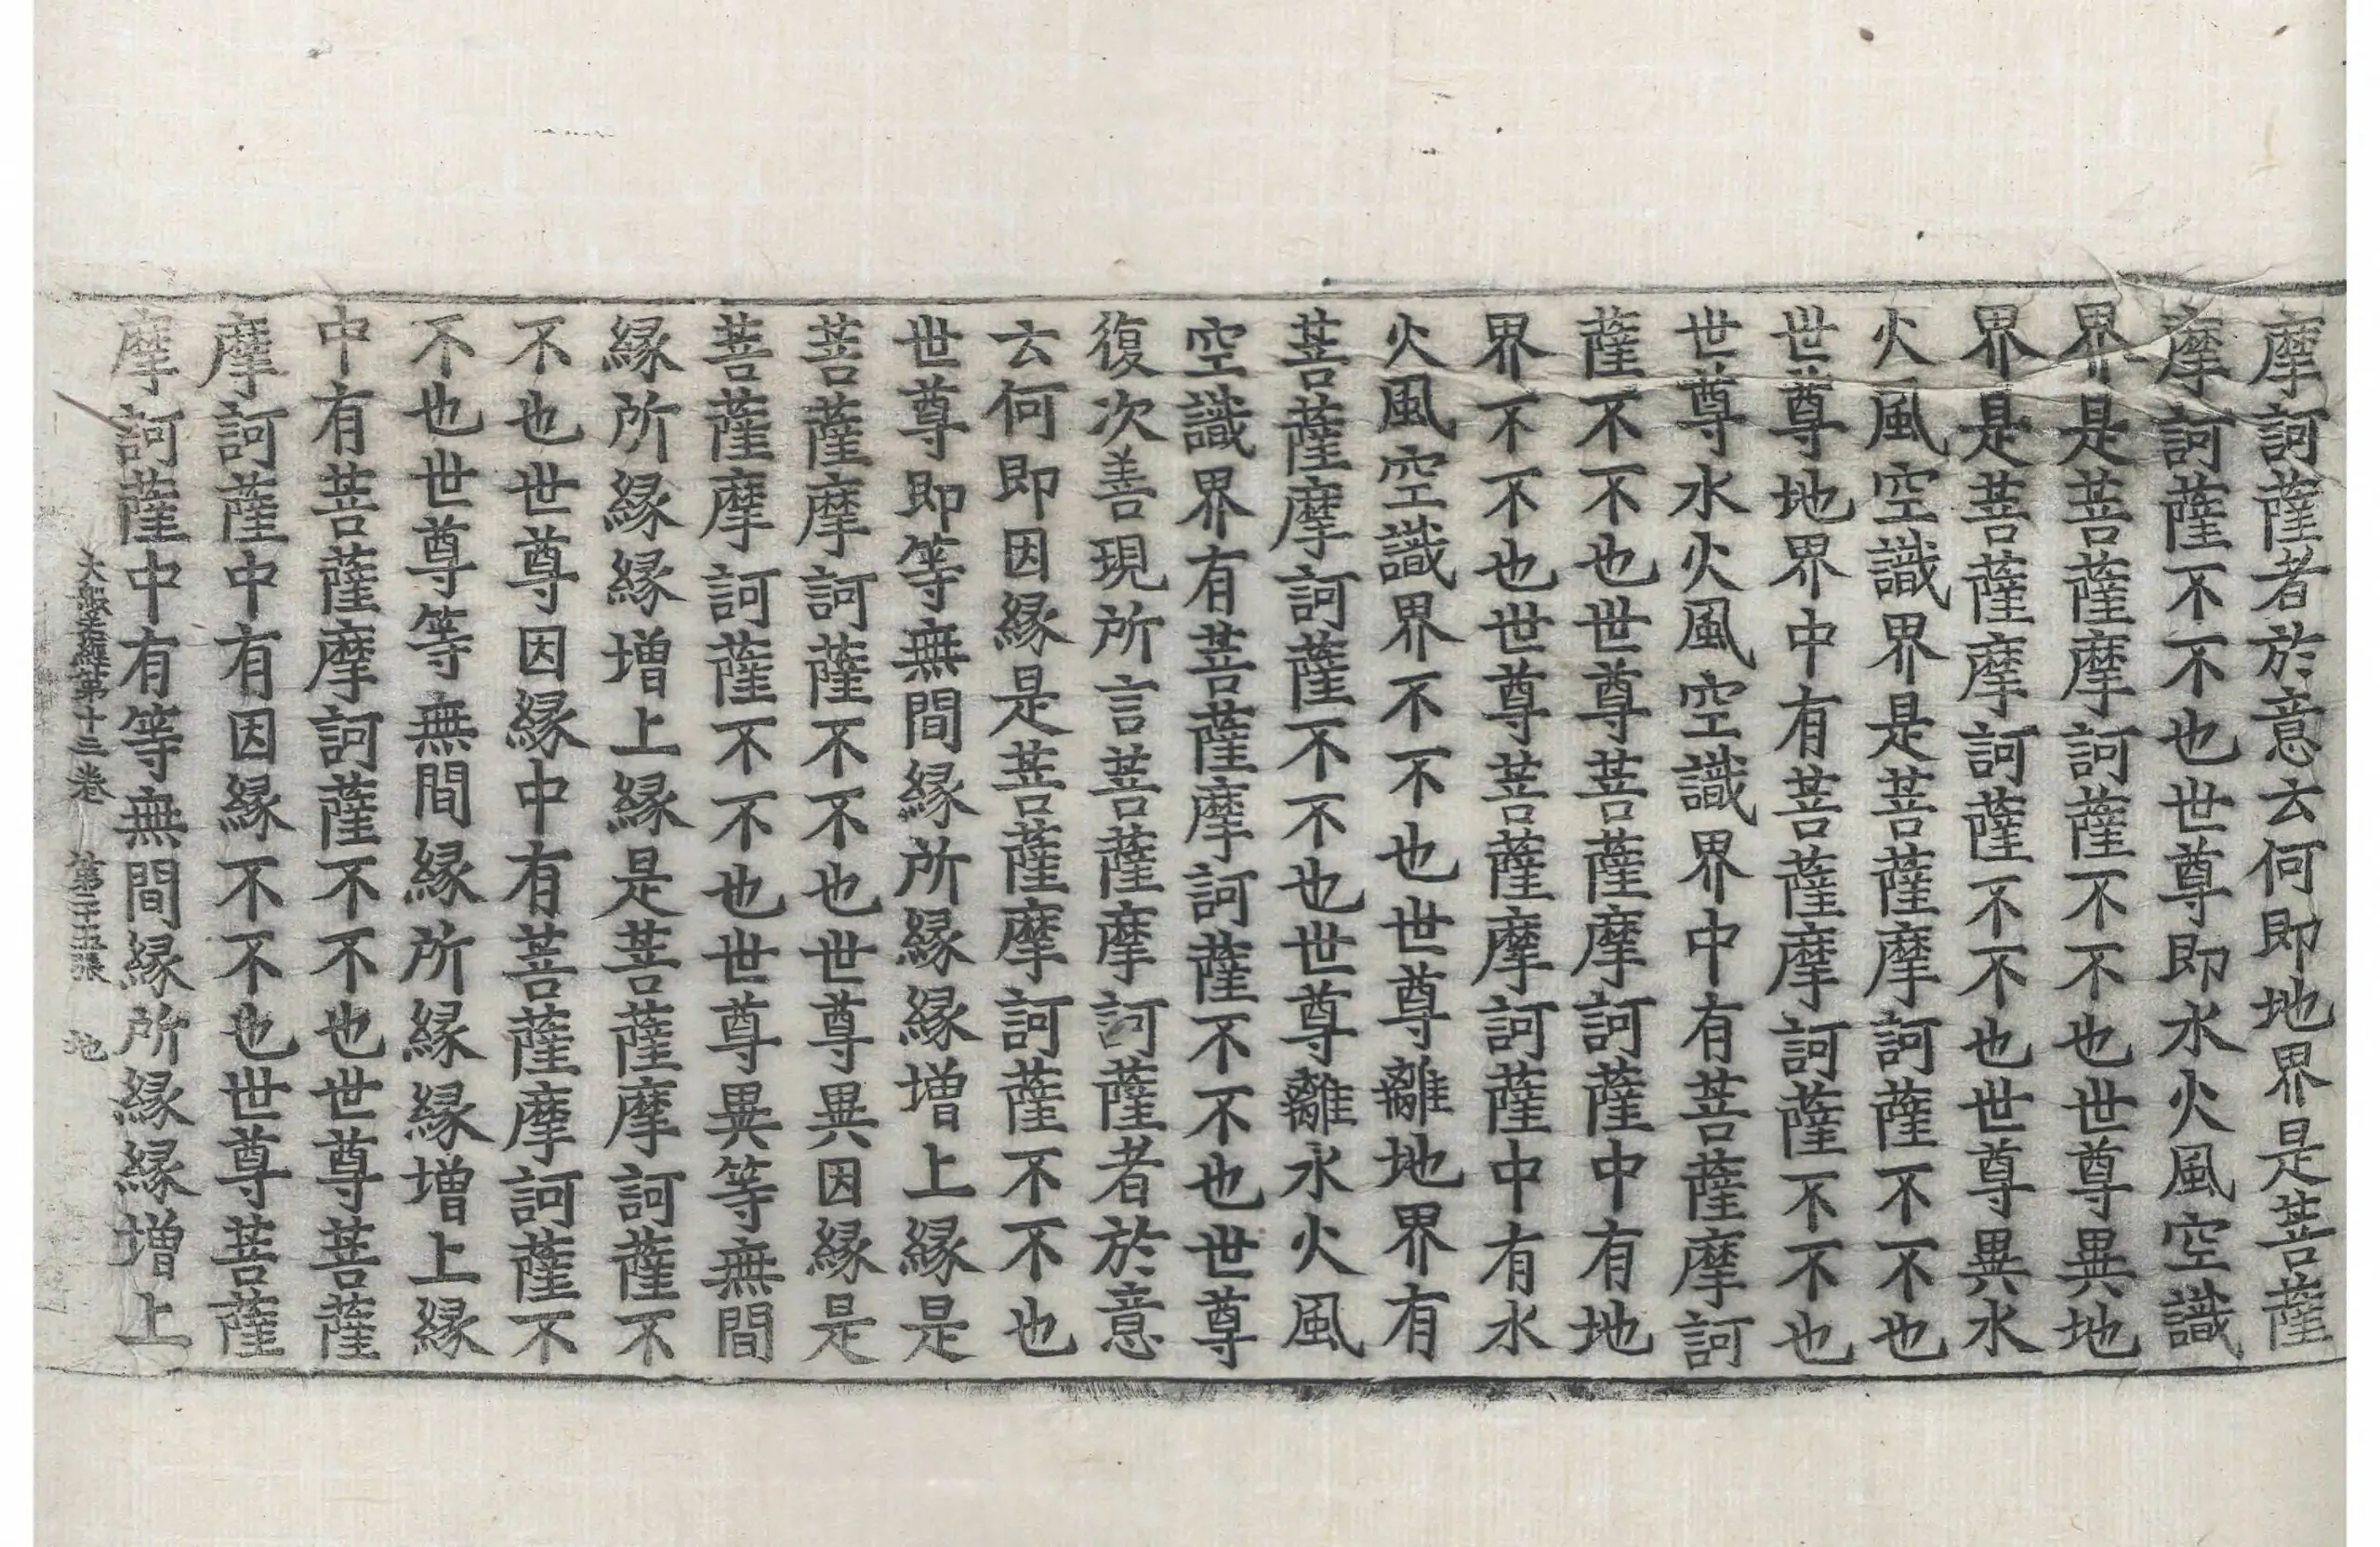 摩訶薩者於意云何即地界是菩薩
摩訶薩不不也世尊即水火風空識
界是菩薩摩訶薩不不也世尊異地
界是菩薩摩訶薩不不也世尊異水
火風空識界是菩薩摩訶薩不不也
世尊地界中有菩薩摩訶薩不不也
世尊水火風空識界中有菩薩摩訶
薩不不也世尊菩薩摩訶薩中有地
界不不也世尊菩薩摩訶薩中有水
火風空識界不不也世尊離地界有
菩薩摩訶薩不不也世尊離水火風
空識界有菩薩摩訶薩不不也世尊
復次善現所言菩薩摩訶薩者於意
云何即因緣是菩薩摩訶薩不不也
世尊即等無間緣所緣緣增上緣是
菩薩摩訶薩不不也世尊異因緣是
菩薩摩訶薩不不也世尊異等無間
緣所緣緣增上緣是菩薩摩訶薩不
不也世尊因緣中有菩薩摩訶薩不
不也世尊等無間緣所緣緣增上緣
中有菩薩摩訶薩不不也世尊菩薩
摩訶薩中有因緣不不也世尊菩薩
摩訶薩中有等無間緣所緣緣增上
大般若經第十三卷 第二十五張 地